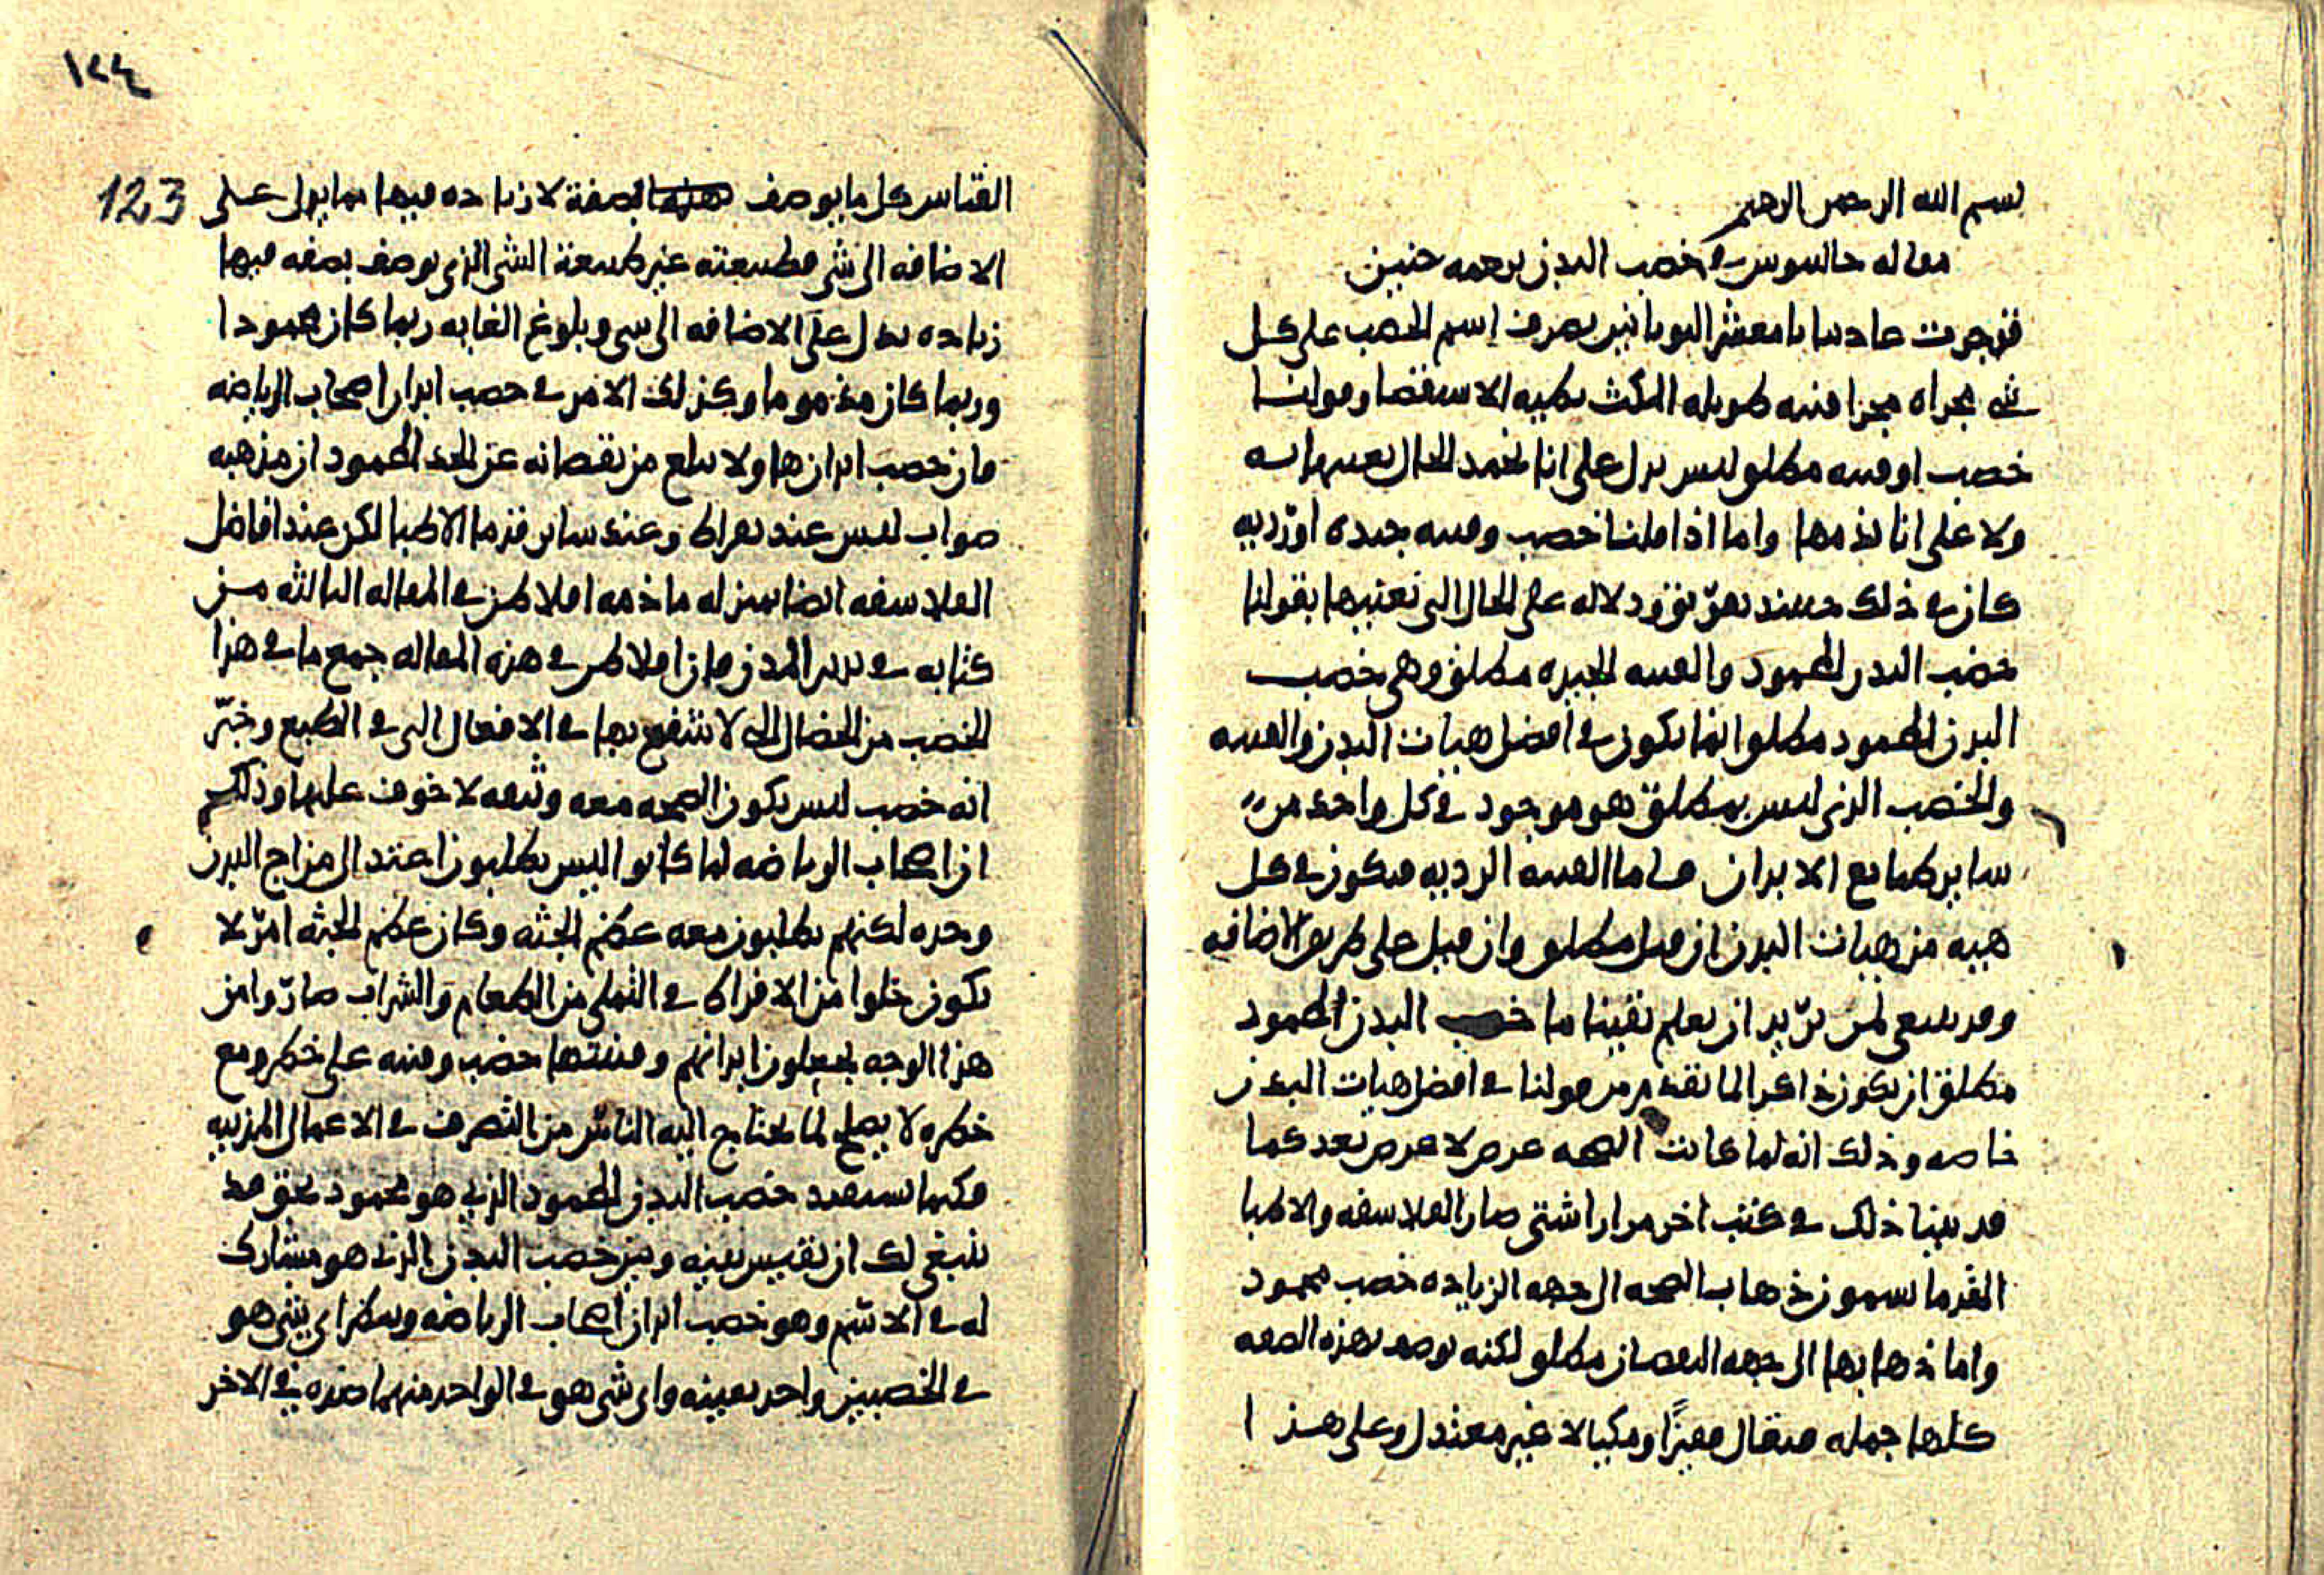 بسم الله الرحمن الرحيم
مقاله جالينوس في خصب البدن ترجمه حنين
قد جرت عادتنا يا معشر اليونانيين بصرف اسم الخصب على كل
شي مجراه مجرا قنيه طويله المكث بطيه الانتقضا وقولنا
خصب او قنيه مطلق ليس يدل على انا نحمد الحال بعينها
ولا على انا نذمها واما اذا قلنا خصب وقنيه جيده او رديه
كان في ذلك حينيذ دلاله على الحال التي نعنيها بقولنا
خصب البدن المحمود والقنيه الجيده مطلق وهي خصب
البدن المحمود مطلق انما يكون في افضل هيات البدن والقنيه
والخصب الذي ليس بمطلق هو موجود في كل واحد من
ساير طبايع الابدان فاما القنيه الرديه فيكون في كل
هييه من هيات البدن ان قيل مطلق وان قيل على طريق الاضافه
وقد ينبغي لمن يريد ان يعلم يقينا ما خصب البدن المحمود
مطلق ان يكون ذاكرا لما تقدم من قولنا في افضل هيات البدن
خاصه وذلك انه لما كانت الصحه عرض لا عرض بعد كما
قد بينا ذلك في كتب اخر مرارا شتى صار الفلاسفه والاطبا
القدما يسمون ذهاب الصحه الى جهه الزياده خصب محمود
واما ذهابها الى جهه النقصان مطلق لكنه يوصف بهذه الصفه
كلها جمله فيقال قفيزا ومكيالا غير معتدل وعلى هذا
١٢٤
123
القياس كل ما يوصف بصفة لا زياده فيها مما يدل على
الاضافه الى شي فطبيعته غير طبيعة الشي الذي يوصف بصفه فيها
زياده تدل على الاضافه الى شي وبلوغ الغايه ربما كان محمودا
وربما كان مذموما وكذلك الامر في خصب ابدان اصحاب الرياضه
فان خصب ابدانها ولا يبلغ من نقصانه عن الحد المحمود ان مذهبه
صواب ليس عند بقراط وعند ساير قدما الاطبا لكن عند افاضل
الفلاسفه ايضا بمنزله ما ذمه افلاطن في المقاله الثالثه من
كتابه في تدبير المدن فان افلاطن في هذه المقاله جمع ما في هذا
الخصب من الخصال التي لا ينتفع بها في الافعال التي في الطبع وخبّر
انه خصب ليس يكون الصحه معه وثيقه لا خوف عليها وذلك
ان اصحاب الرياضه لما كانوا ليس يطلبون اعتدال مزاج البدن
وحده لكنهم يطلبون معه عظم الجثه وكان عظم الجثه امر لا
يكون خلوا من الافراط في التملي من الطعام والشراب صاروا من
هذا الوجه يجعلون ابدانهم وقنيتها خصب وقنيه على خطر ومع
خطره لا يصلح لما يحتاج اليه الناس من التصرف في الاعمال المدنيه
فكما تستفيد خصب البدن المحمود الذي هو محمود بحق قد
ينبغي لك ان تقيس بينه وبين خصب البدن الذي هو مشارك
له في الاسم وهو خصب ابدان اصحاب الرياضه وتنظر اي شي هو
في الخصبين واحد بعينه واي شي هو في الواحد منهما ضده في الاخر